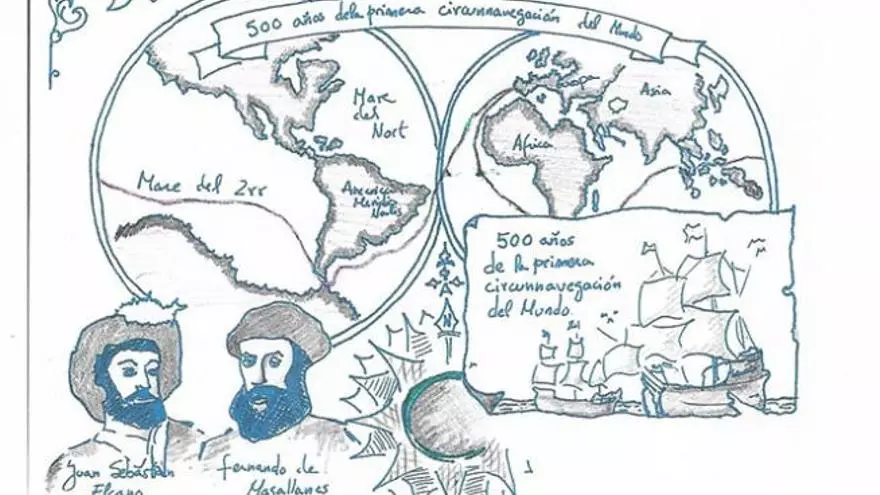 500 años de la primera circunnavegación del Mundo
Mare
del
Nort
Europa
Asia
Africa
Mare del Zrr
America
Meridio
Nales
500 años
de la primera
circunnavegación
del Mundo.
N
Juan Sebastián
Elcano
Fernando de
Magallanes